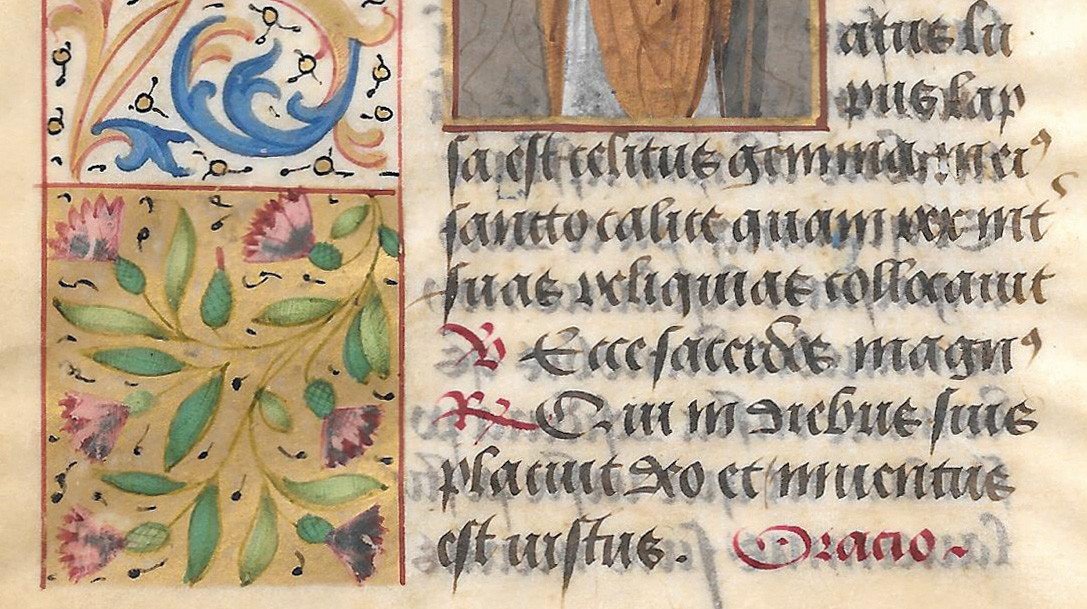 atus lu
pus lap
sa est celitus gemma mei⁹
sancto calice quam rex int
suas reliquias collocauit
℣ Ecce sacerdos magn⁹
℟ Qui in diebus suis
placuit deo et inuentus
est iustus. Oracio~